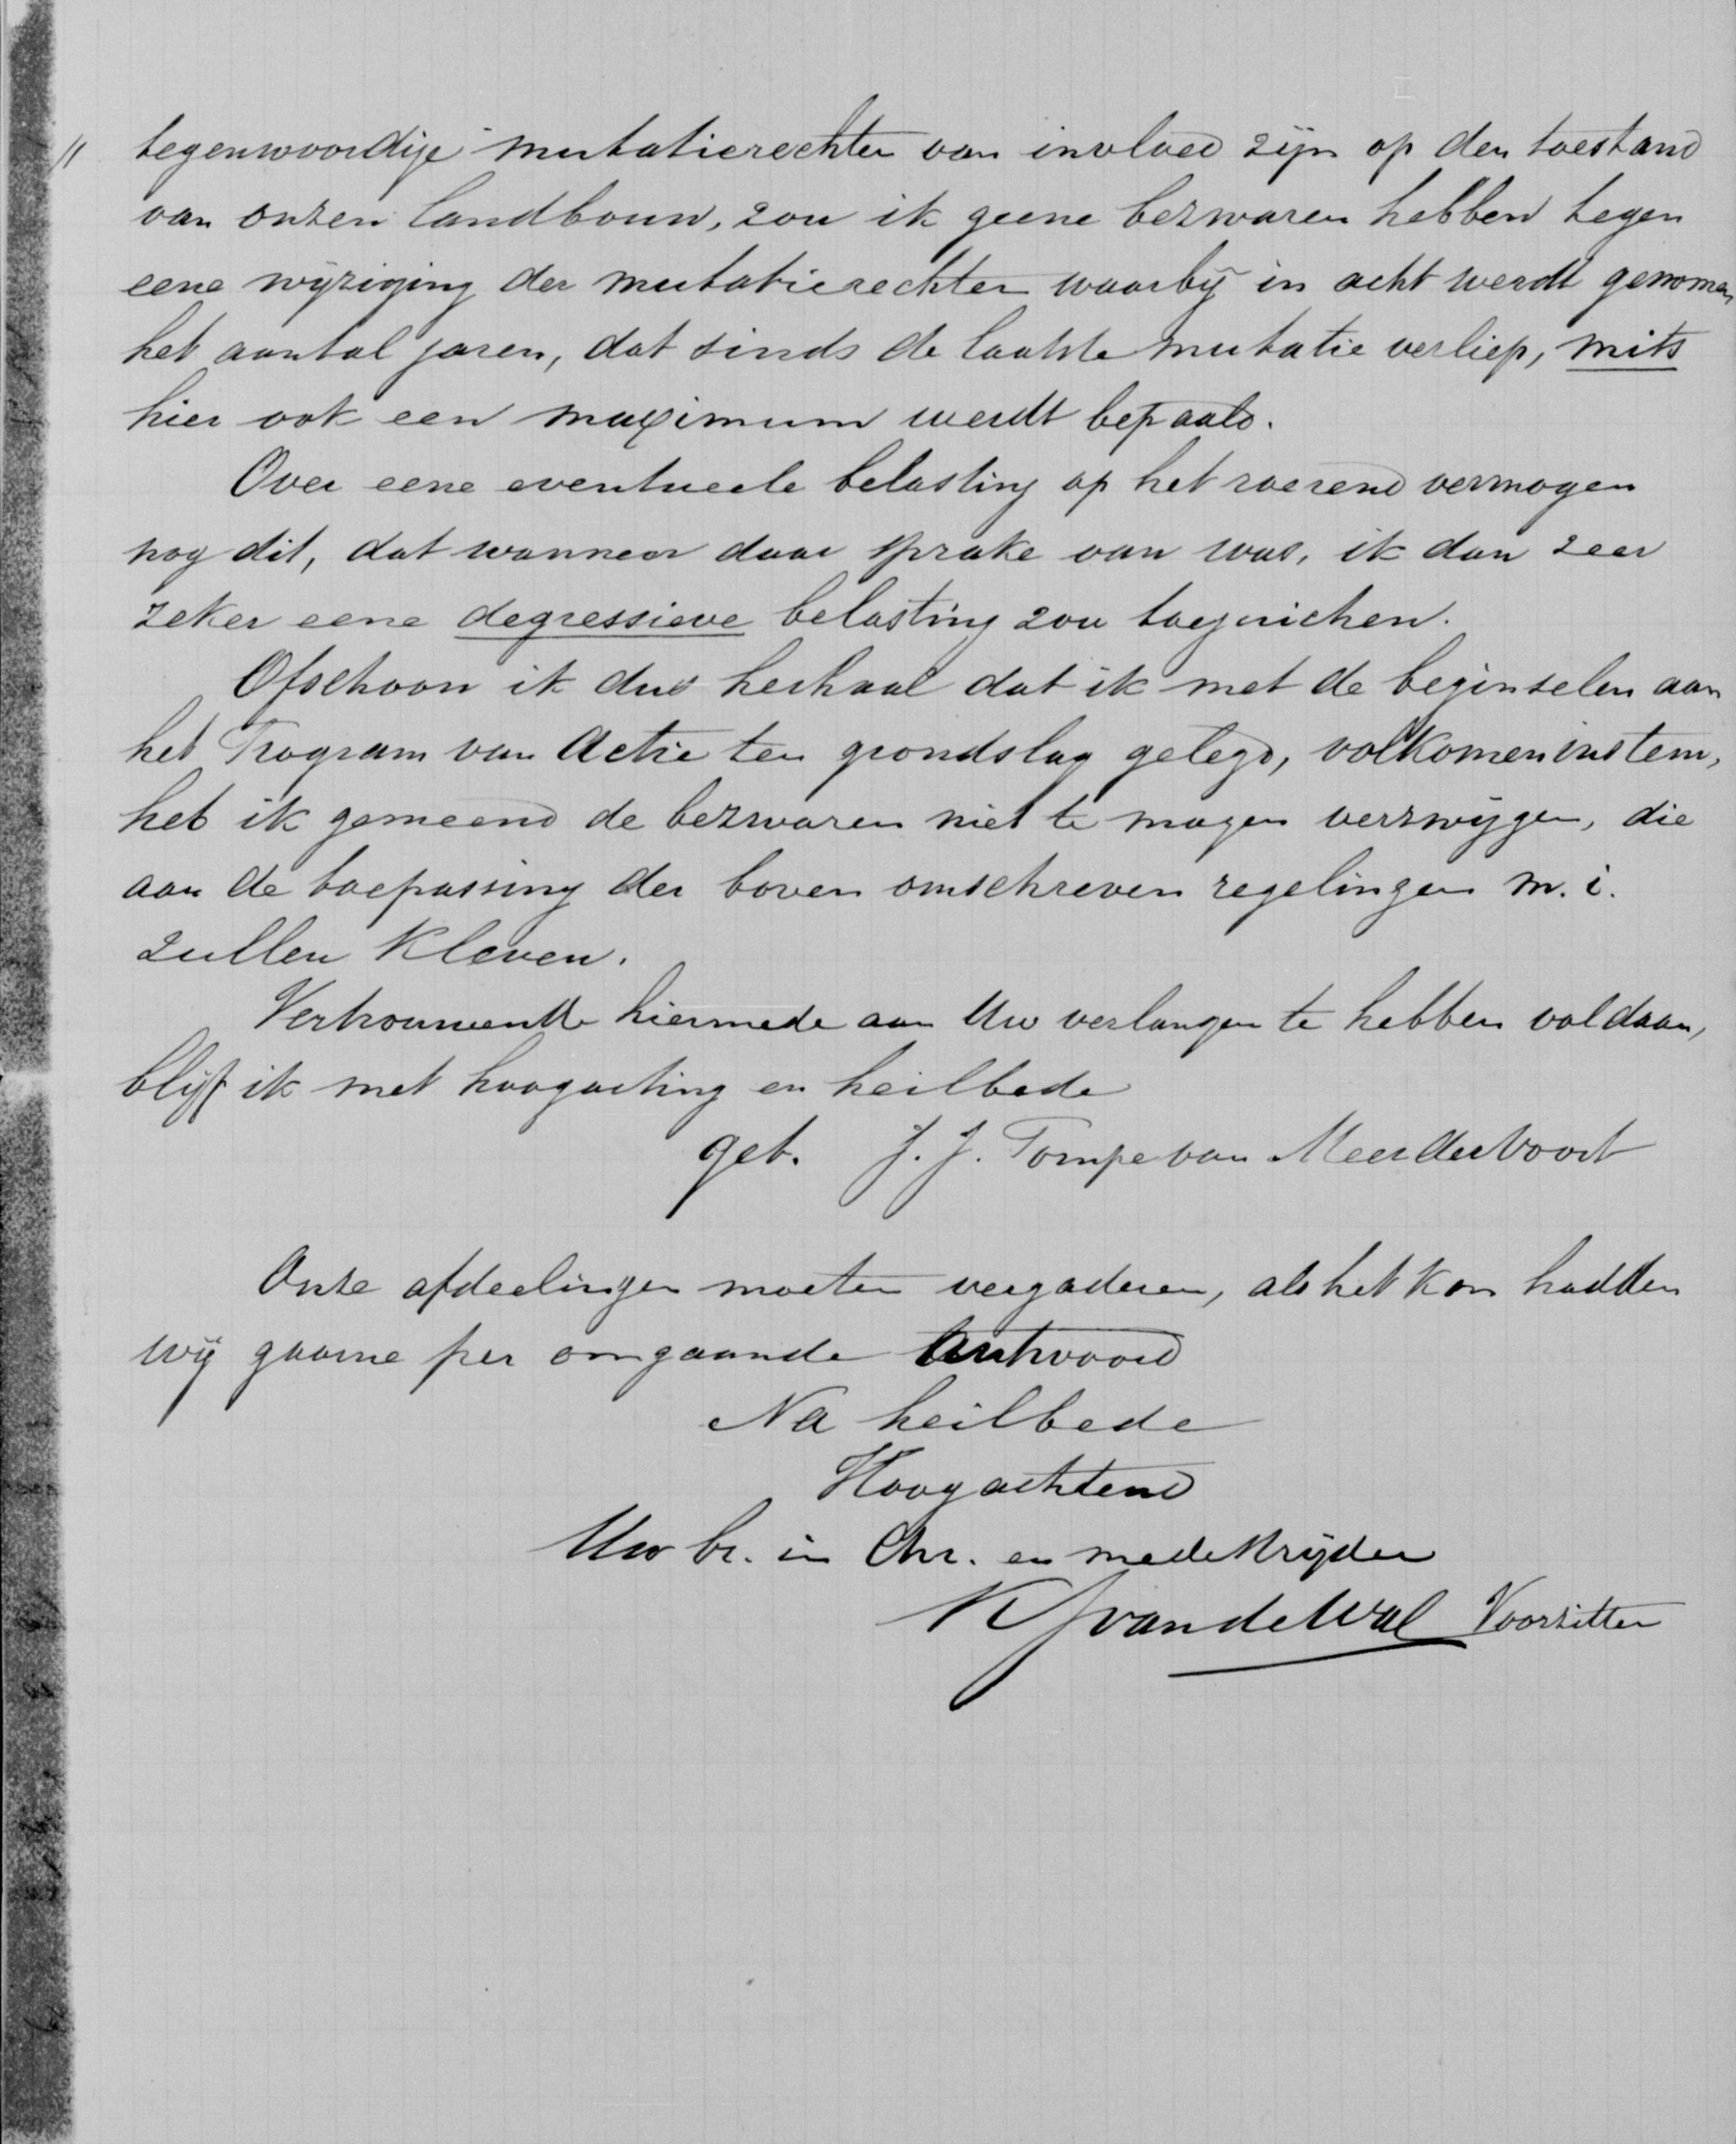 " tegenwoordige mutatierechten van invloed zijn op den toestand
van onzen landbouw, zou ik geene bezwaren hebben tegen
eene wijziging der mutatierechten waarbij in acht werdt genomen
het aantal jaren, dat sinds de laatste mutatie verliep, mits
hier ook een maximum werdt bepaald.
Over eene eventueele belasting op het roerend vermogen
nog dit, dat wanneer daar sprake van was, ik dan zeer
zeker eene degressieve belasting zou toejuichen.
Ofschoon ik dus herhaal dat ik met de beginselen aan
het Program van Actie ten grondslag gelegd, volkomen instem,
heb ik gemeend de bezwaren niet te mogen verzwijgen, die
aan de toepassing der boven omschreven regelingen m. i.
zullen kleven.
Vertrouwende hiermede aan Uw verlangen te hebben voldaan,
blijf ik met hoogachting en heilbede
get. J. J. Pompe van Meerdervoort
Onze afdeelingen moeten vergaderen, als het kon hadden
wij gaarne per omgaande Antwoord
Na heilbede
Hoogachtend
Uw br. in Chr. en medestrijder
K J van de Wal Voorzitter